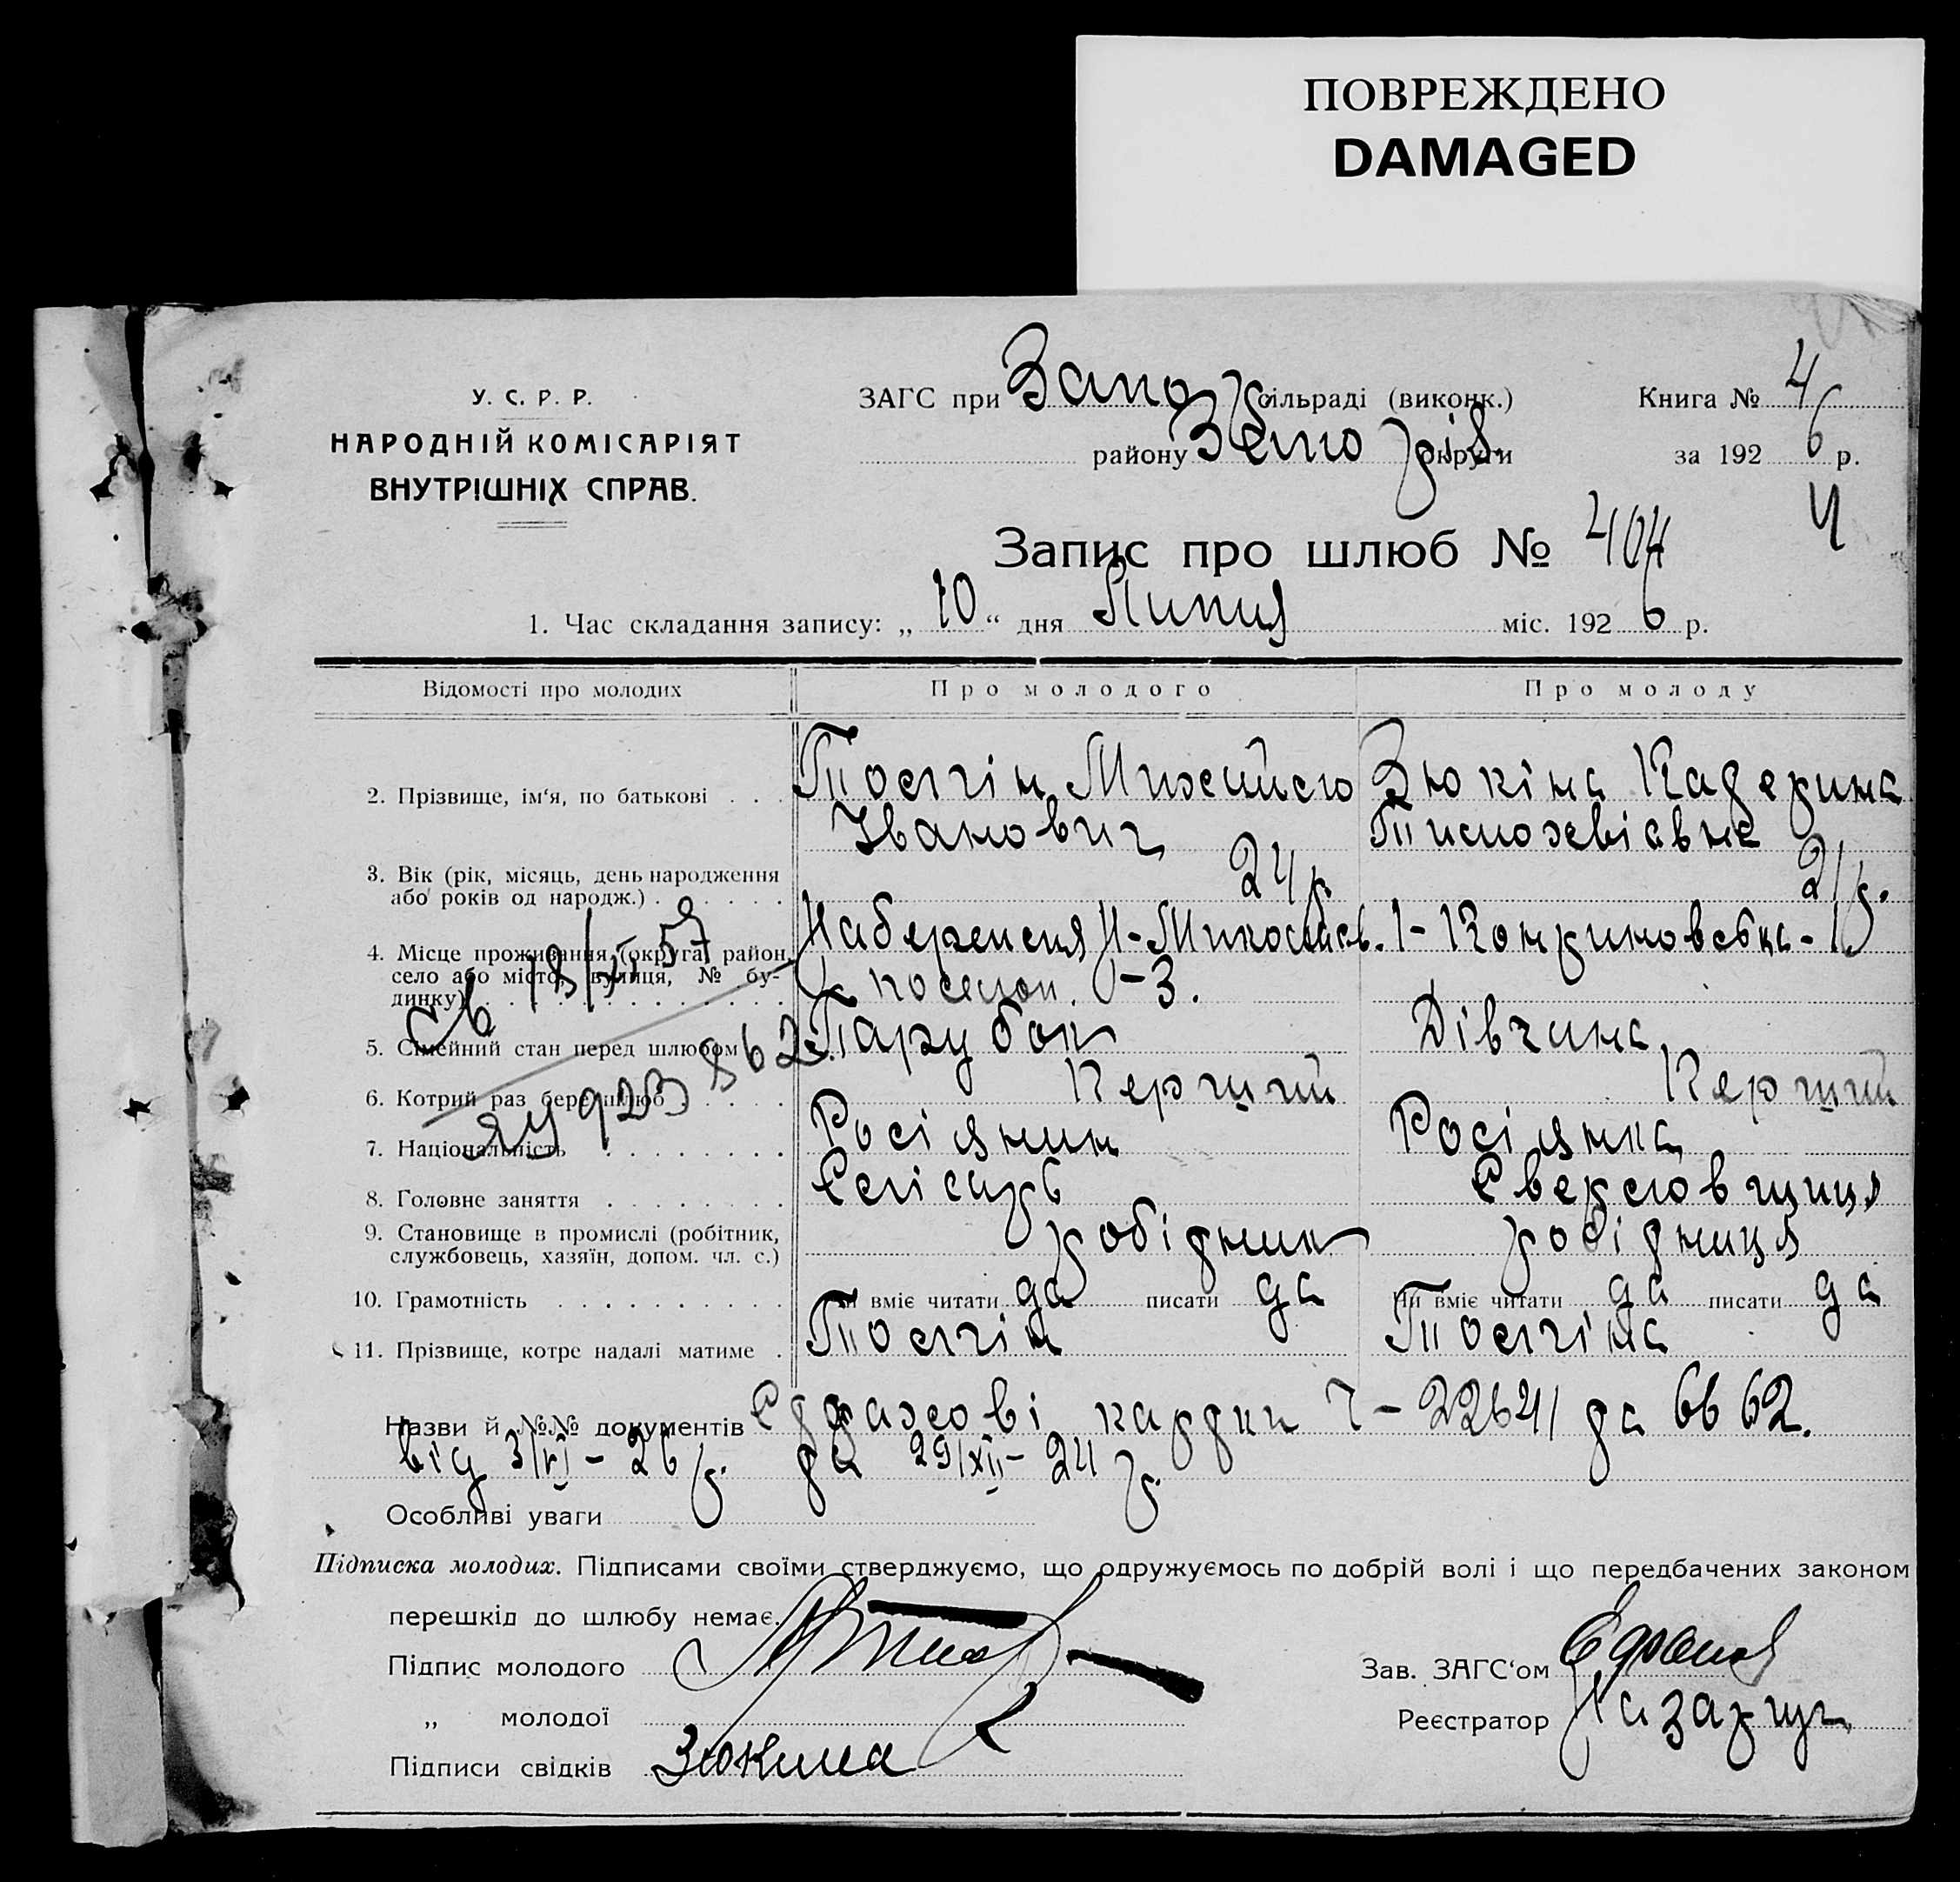 ПОВРЕЖДЕНО
DAMAGED
У. С. Р. Р.
НАРОДНІЙ КОМІСАРІЯТ
ВНУТРІШНІХ СПРАВ.
ЗАГС при Запо сільраді (виконк.)
Книга № 4
району округи
за 1926 р.
Запис про шлюб № 404
Ч
1. Час складання запису: „10“ дня Липня міс. 1926 р.
Відомості про молодих Про молодого Про молоду
2. Прізвище, ім'я, по батькові . . . Михайло Зюкіна Катерина
Іванович
3. Вік (рік, місяць, день народження
або років од народж.) . . . . . . 24 р. 21 р.
4. Місце проживання (округа, район,
село або місто, вулиця, № бу-
динку) . . . . . . . . . . . .
посилон. -3.
5. Сімейний стан перед шлюбом Парубок Дівчина
6. Котрий раз бере шлюб . . . . . Перший Перший
7. Національність . . . . . . . . Росіянин Росіянка
8. Головне заняття . . . . . . . . Слісарь Сверловщиця
9. Становище в промислі (робітник,
службовець, хазяїн, допом. чл. с.) робітник робітниця
10. Грамотність . . . . . . . . . . Чи вміє читати да писати да Чи вміє читати да писати да
11. Прізвище, котре надалі матиме .
Назви й №№ документів Страхові картки Ч-22641 та 6662.
від 3/VI - 26 р. та 29/XII - 24 р.
Особливі уваги
Підписка молодих. Підписами своїми стверджуємо, що одружуємось по добрій волі і що передбачених законом
перешкід до шлюбу немає.
Підпис молодого
Зав. ЗАГС'ом
„ молодої
Реєстратор
Підписи свідків Зюкина